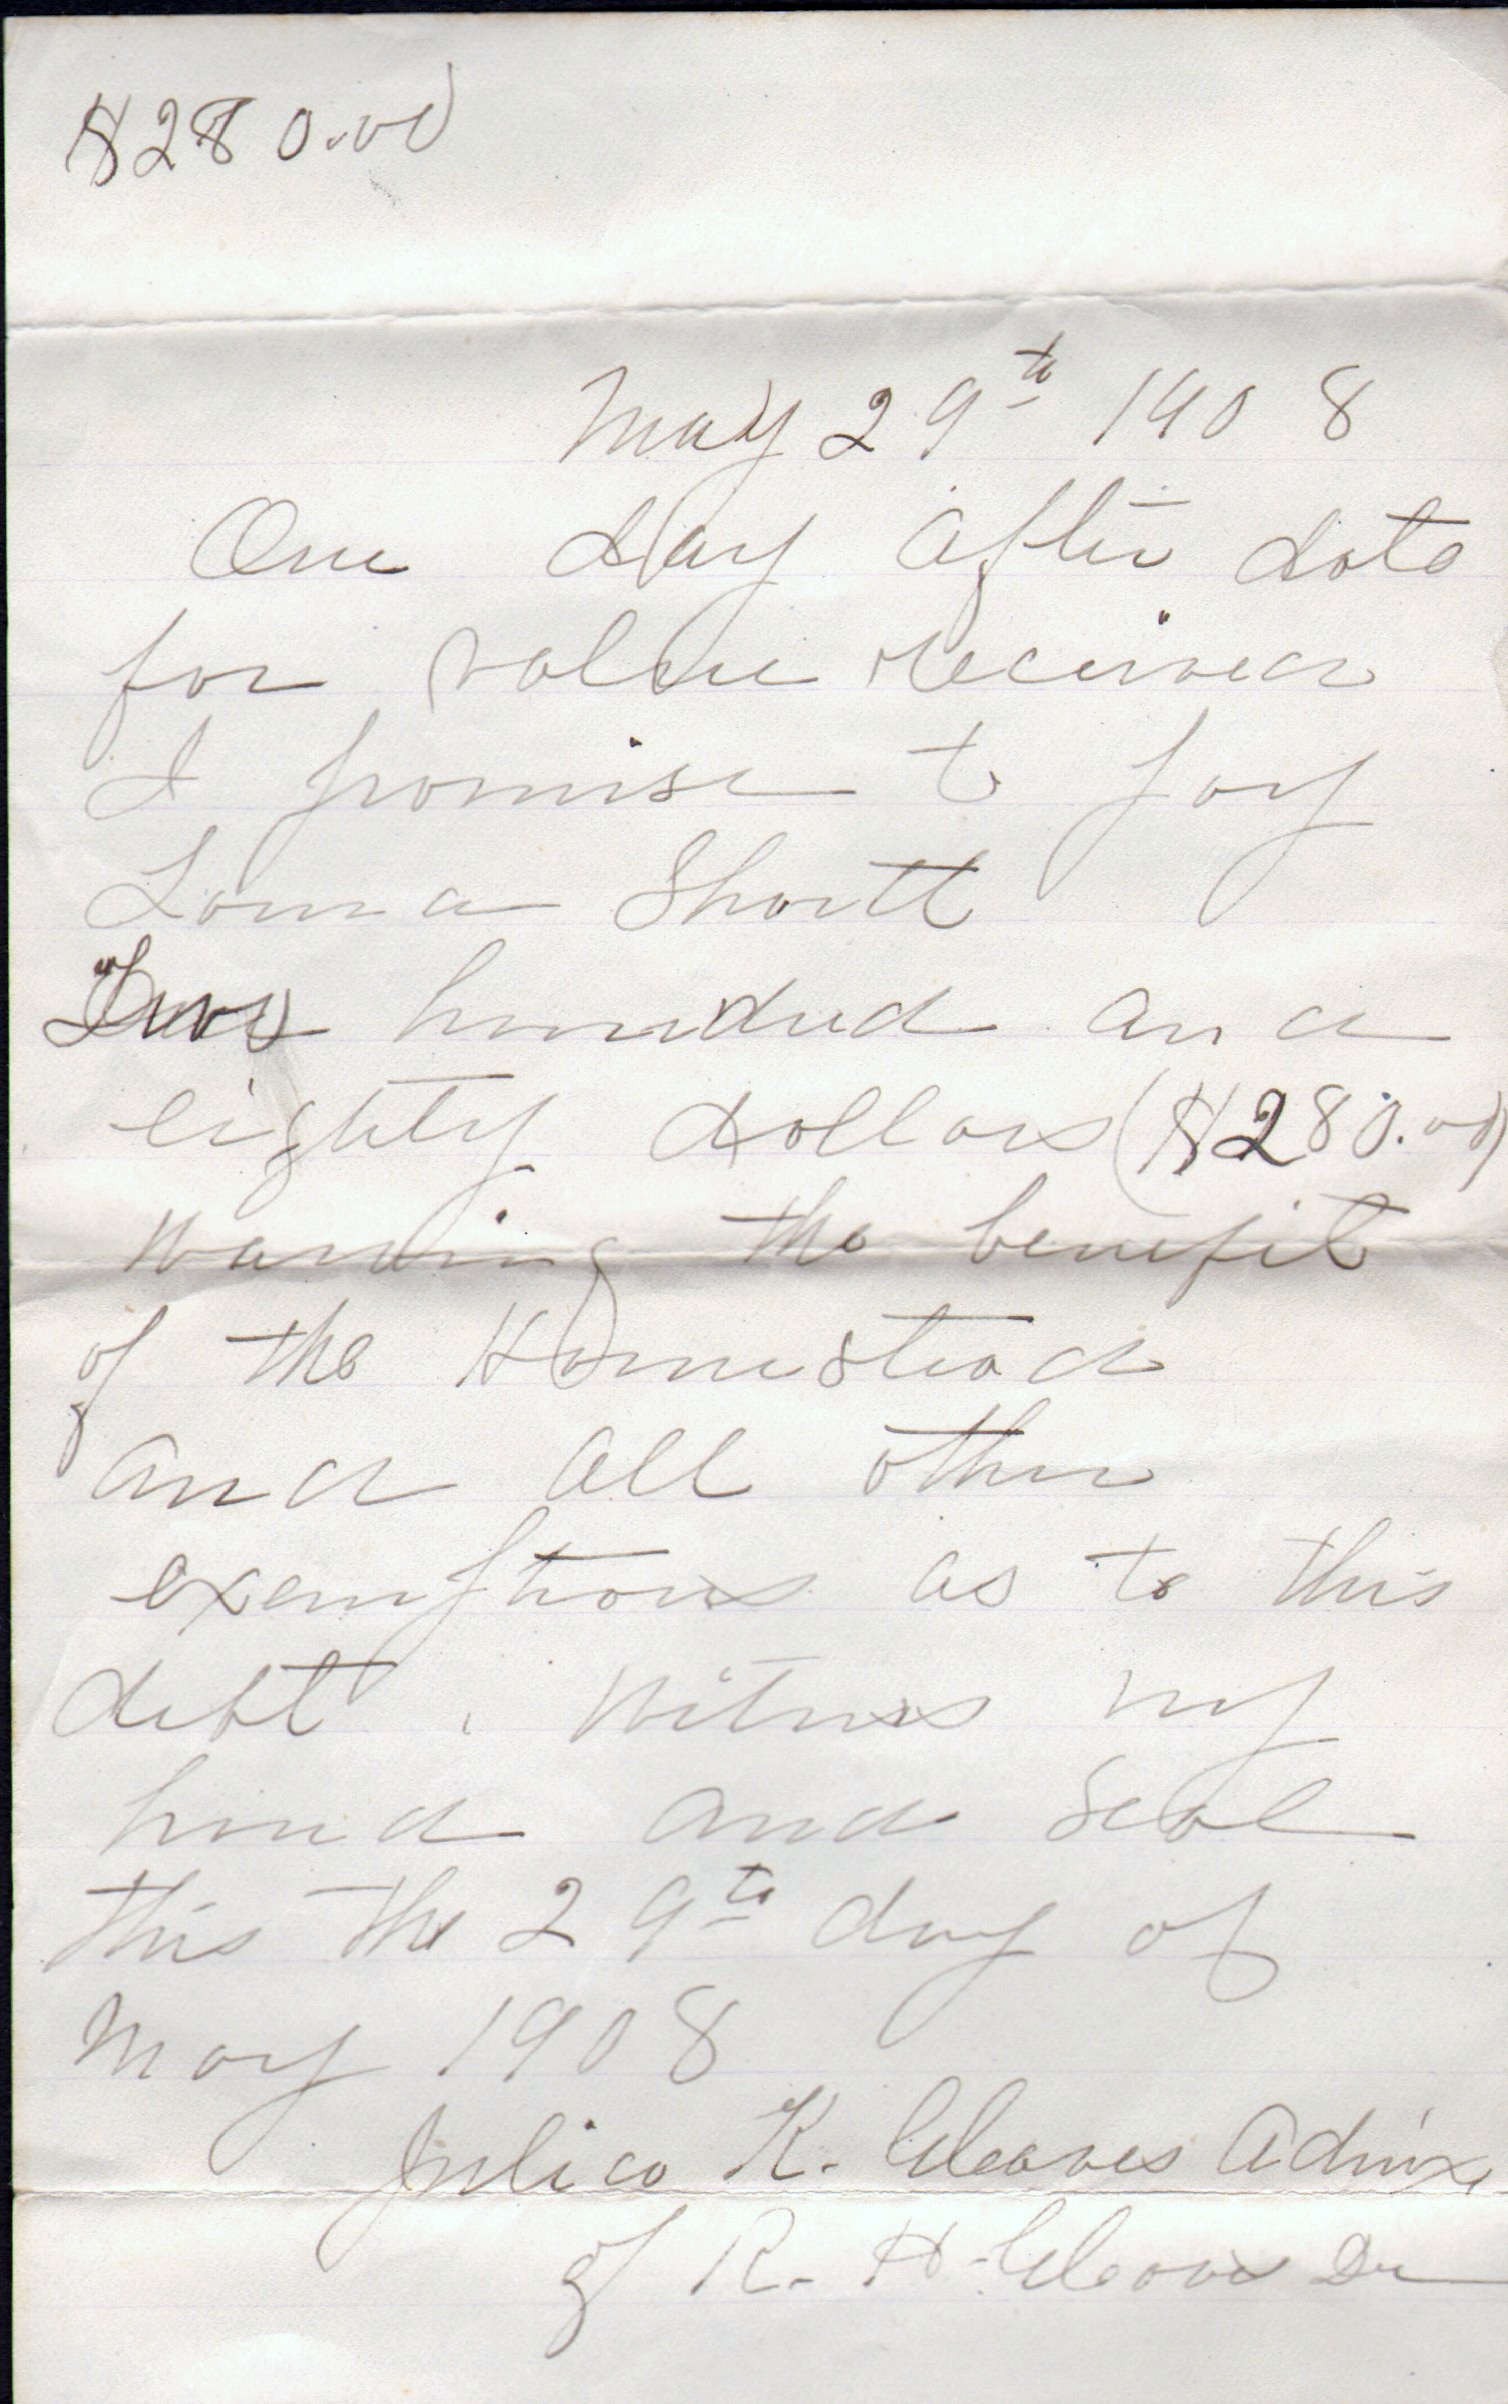 $280.00
May 29th 1908
One day after date
for value received
I promise to pay
Loma Shortt
Two hundred and
eighty dollars ($280.00)
waiving the benefit
of the Homestead
and all other
exemptions as to this
debt. Witness my
hand and seal
this the 29th day of
May 1908
Julia K. Cleaves Admx
of R. H. Cleaves